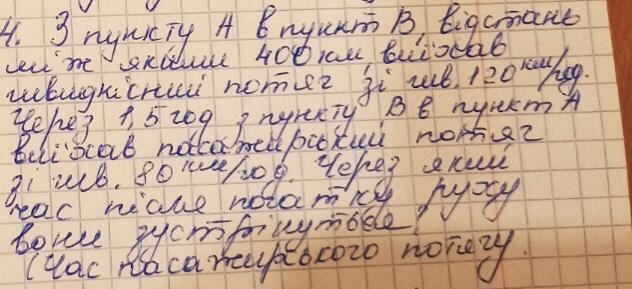 4. З пункту А в пункт В, відстань
між якими 400 км, виїхав
швидкісний потяг зі шв. 120 км/год.
Через 1,5 год з пункту В в пункт А
виїхав пасажирський потяг
зі шв. 80 км/год. Через який
час після початку руху
вони зустрінуться
(Час пасажирського потягу.